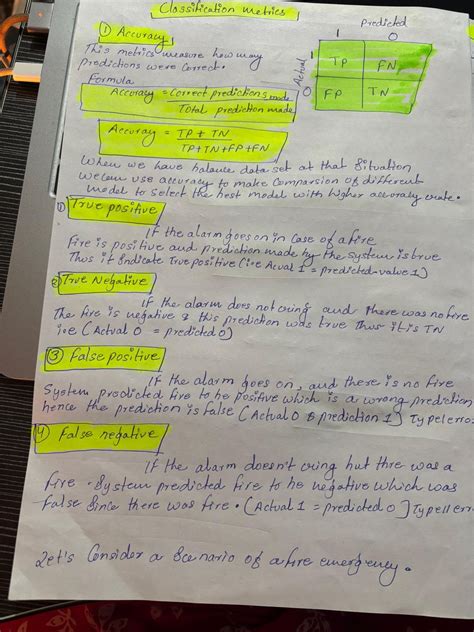 Classification metrics
① Accuracy
This metrics measure how many
predictions were correct.
Formula
Accuracy = Correct predictions made
Total prediction made
Accuracy = TP + TN
TP+TN+FP+FN
Predicted
1 0
Actual
1 TP FN
0 FP TN
When we have balance data set at that Situation
we can use accuracy to make Comparsion of different
model to Select the best model with higher accuracy
① True positive
If the alarm goes on in case of a fire
Fire is positive and prediction made by the System is true
Thus it indicate True positive (i.e Acual 1 = predicted value 1)
② True Negative
If the alarm does not cring and there was no fire
The fire is negative & this prediction was true Thus it is TN
i.e (Actual 0 = predicted 0)
③ False positive
If the alarm goes on, and there is no fire
System prodicted fire to be positive which is a wrong prediction
hence the prediction is false (Actual 0 & prediction 1)
4 False negative
If the alarm doesn't cring but thre was a
fire. System predicted fire to be negative which was
false Since there was fire. (Actual 1 = predicted 0)
Let's Consider a Scenario of a fire emergency.